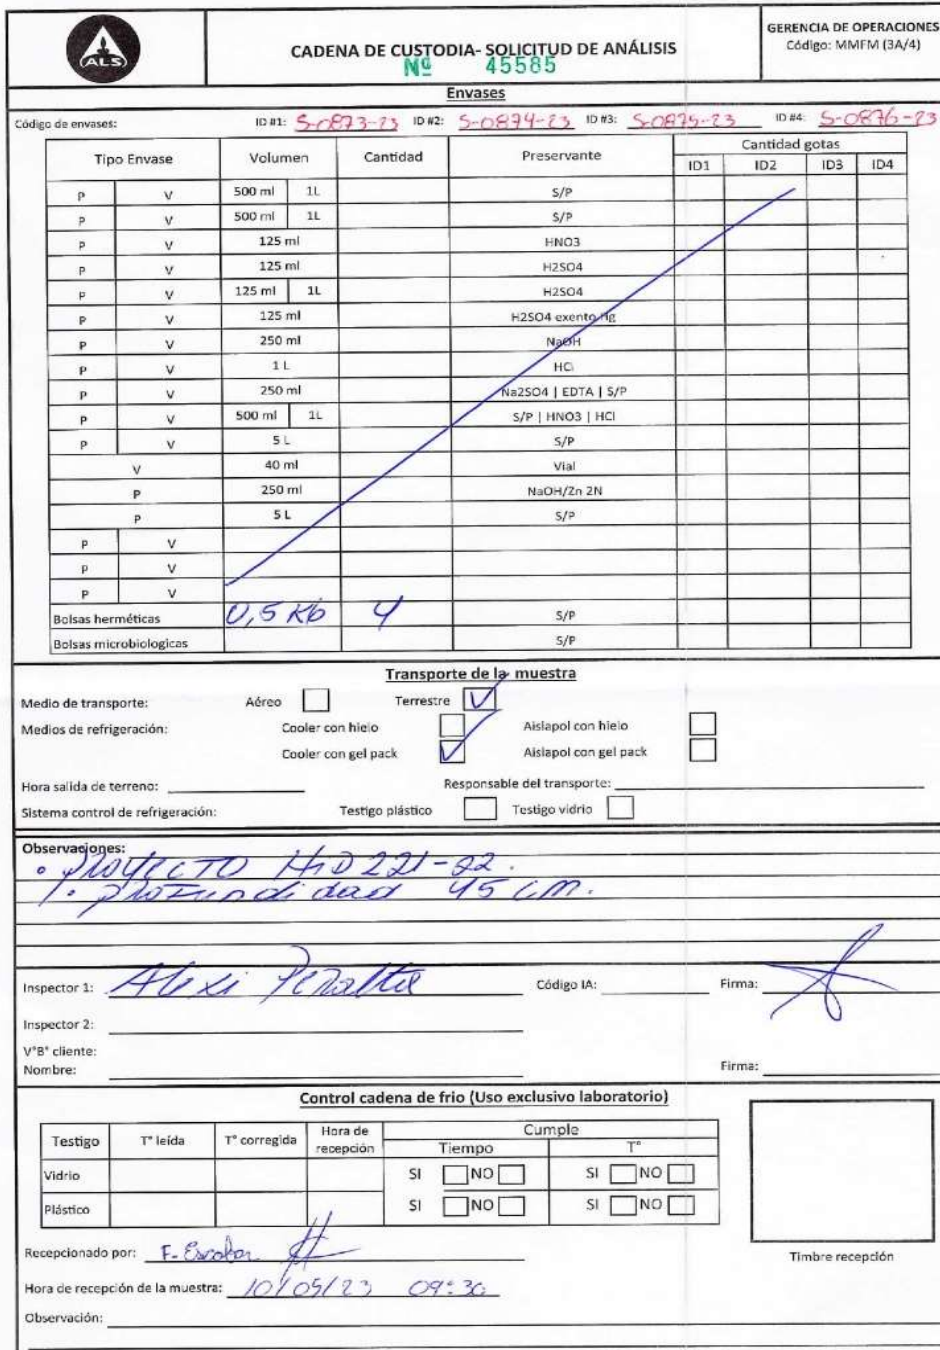 ALS
CADENA DE CUSTODIA- SOLICITUD DE ANÁLISIS
Nº 45585
GERENCIA DE OPERACIONES
Código: MMFM (3A/4)
Envases
Código de envases: ID #1: S-0873-23 ID #2: S-0874-23 ID #3: S-0875-23 ID #4: S-0876-23
Tipo Envase Volumen Cantidad Preservante Cantidad gotas
ID1 ID2 ID3 ID4
P V 500 ml 1L S/P
P V 500 ml 1L S/P
P V 125 ml HNO3
P V 125 ml H2SO4
P V 125 ml 1L H2SO4
P V 125 ml H2SO4 exento Hg
P V 250 ml NaOH
P V 1 L HCl
P V 250 ml Na2SO4 | EDTA | S/P
P V 500 ml 1L S/P | HNO3 | HCl
P V 5 L S/P
V 40 ml Vial
P 250 ml NaOH/Zn 2N
P 5 L S/P
P V
P V
P V
Bolsas herméticas 0,5 Kb 4 S/P
Bolsas microbiologicas S/P
Transporte de la muestra
Medio de transporte: Aéreo Terrestre
Medios de refrigeración: Cooler con hielo Aislapol con hielo
Cooler con gel pack Aislapol con gel pack
Hora salida de terreno: Responsable del transporte:
Sistema control de refrigeración: Testigo plástico Testigo vidrio
Observaciones:
• proyecto HID 221-22.
• profundidad 45 cm.
Inspector 1: Alexi Peralta Código IA: Firma:
Inspector 2:
V°B° cliente:
Nombre: Firma:
Control cadena de frio (Uso exclusivo laboratorio)
Testigo T° leída T° corregida Hora de recepción Cumple
Tiempo T°
Vidrio SI NO SI NO
Plástico SI NO SI NO
Recepcionado por: F. Escobar
Timbre recepción
Hora de recepción de la muestra: 10/05/23 09:30
Observación: